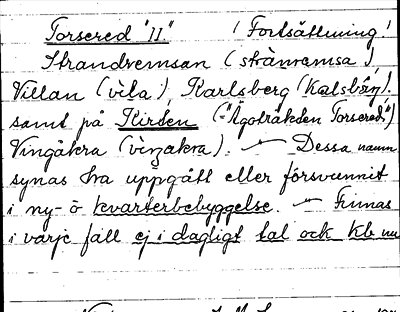 Torsered "11" (Fortsättning!
Strandremsan (stranremsa)
Villan (vila), Karlsberg (Kalsbärj).
samt på Kirsten ("Ägoträkden Torsered")
Vingåkra (viŋakra). — Dessa namn
synas ha uppgått eller försvunnit
i ny- ö kvarterbebyggelse. — Finnas
i varje fall ej i dagligt tal och kb nu